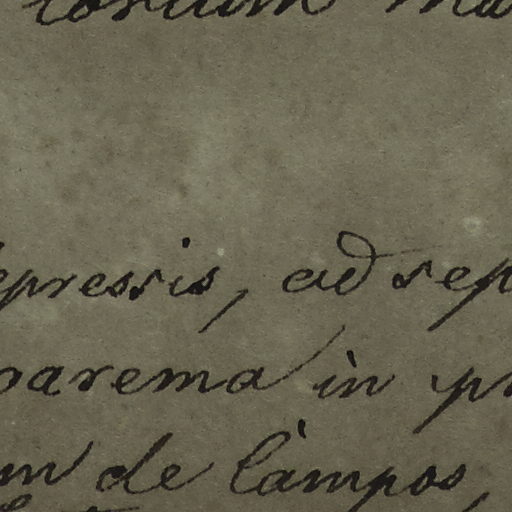 torium ma
epressis, ad sep
parema in pr
um de Campos,